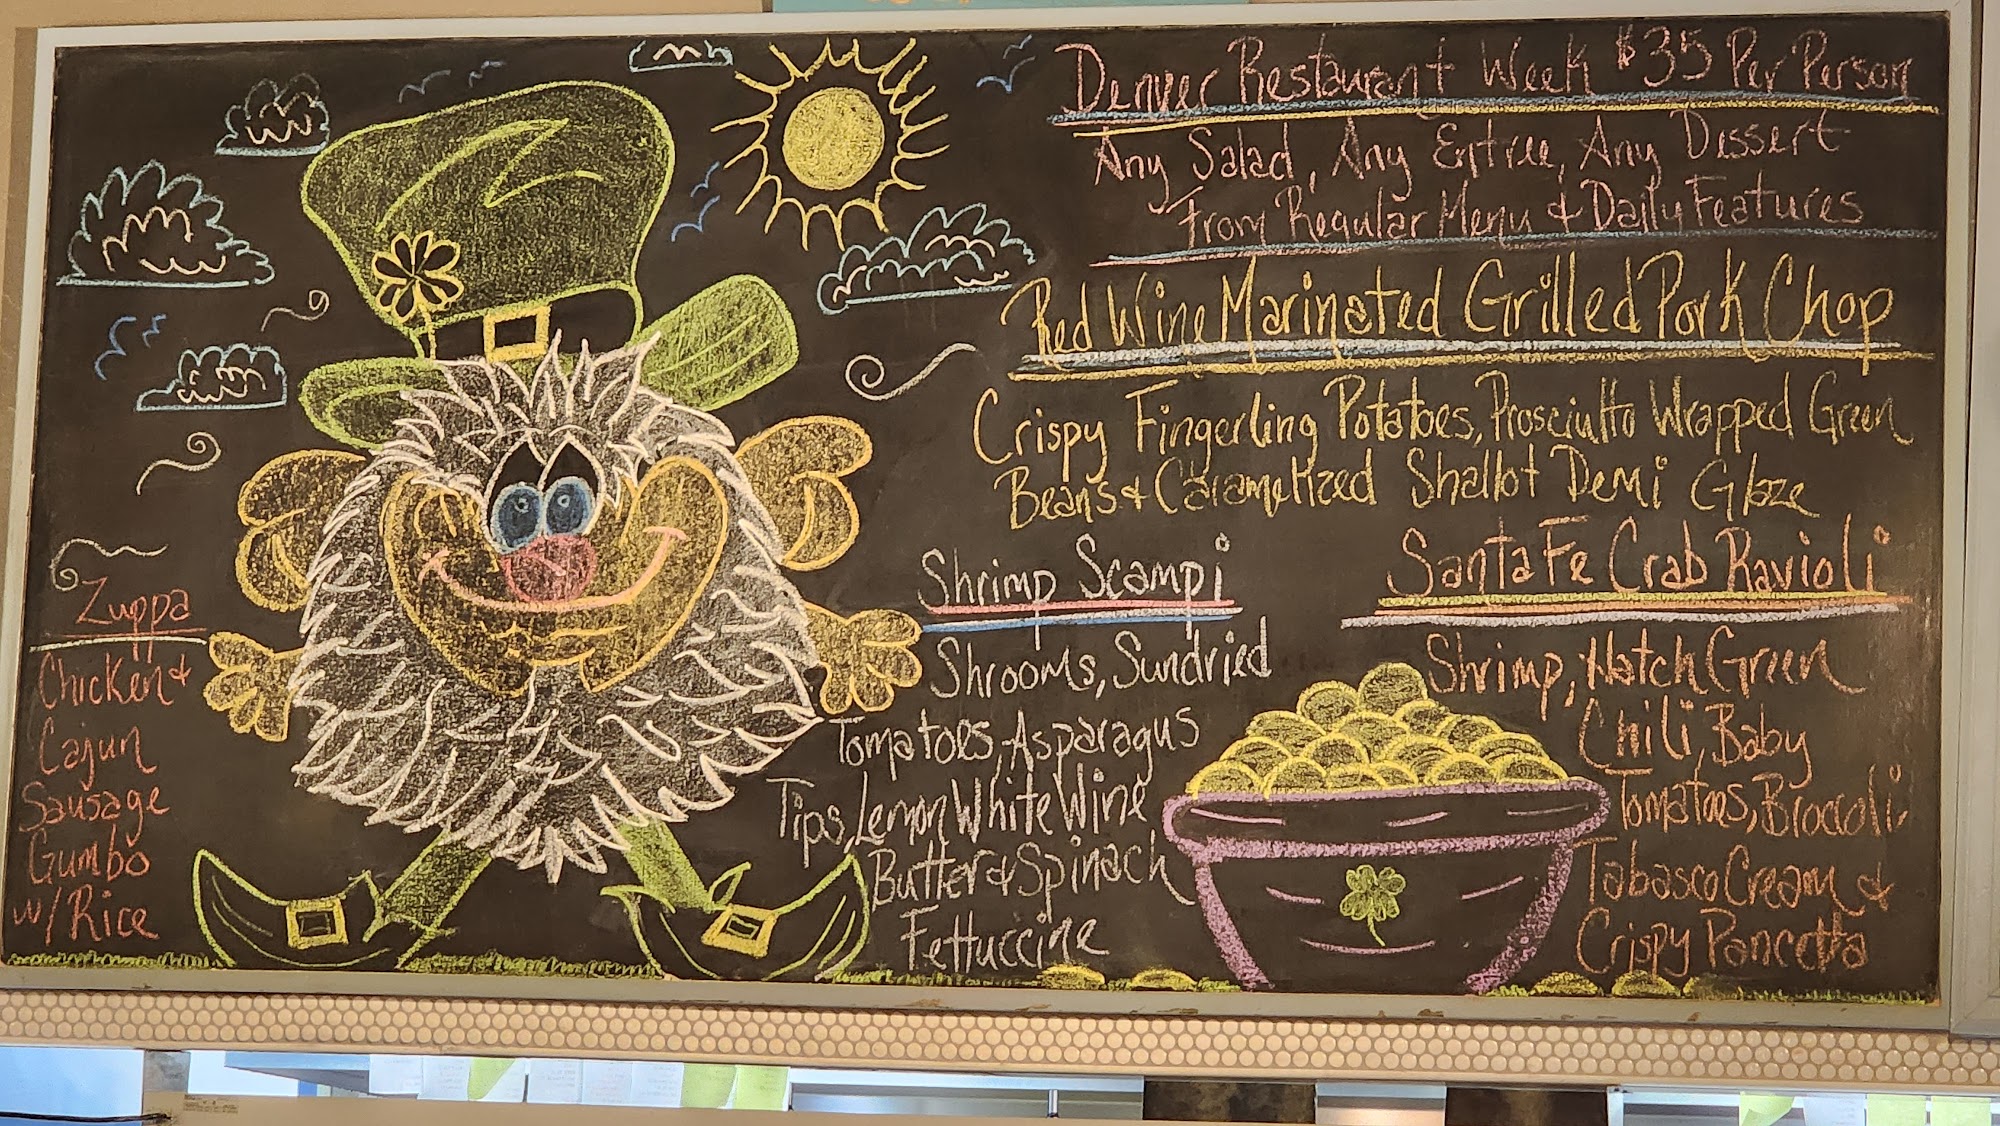 Denver Restaurant Week $35 Per Person
Any Salad, Any Entree, Any Dessert
From Regular Menu & Daily Features
Red Wine Marinated Grilled Pork Chop
Crispy Fingerling Potatoes, Prosciutto Wrapped Green
Beans & Caramelized Shallot Demi Glaze
Shrimp Scampi
Shrooms, Sundried
Tomatoes, Asparagus
Tips, Lemon White Wine
Butter & Spinach
Fettuccine
Santa Fe Crab Ravioli
Shrimp, Hatch Green
Chili, Baby
Tomatoes, Broccoli
Tabasco Cream &
Crispy Pancetta
Zuppa
Chicken &
Cajun
Sausage
Gumbo
w/ Rice